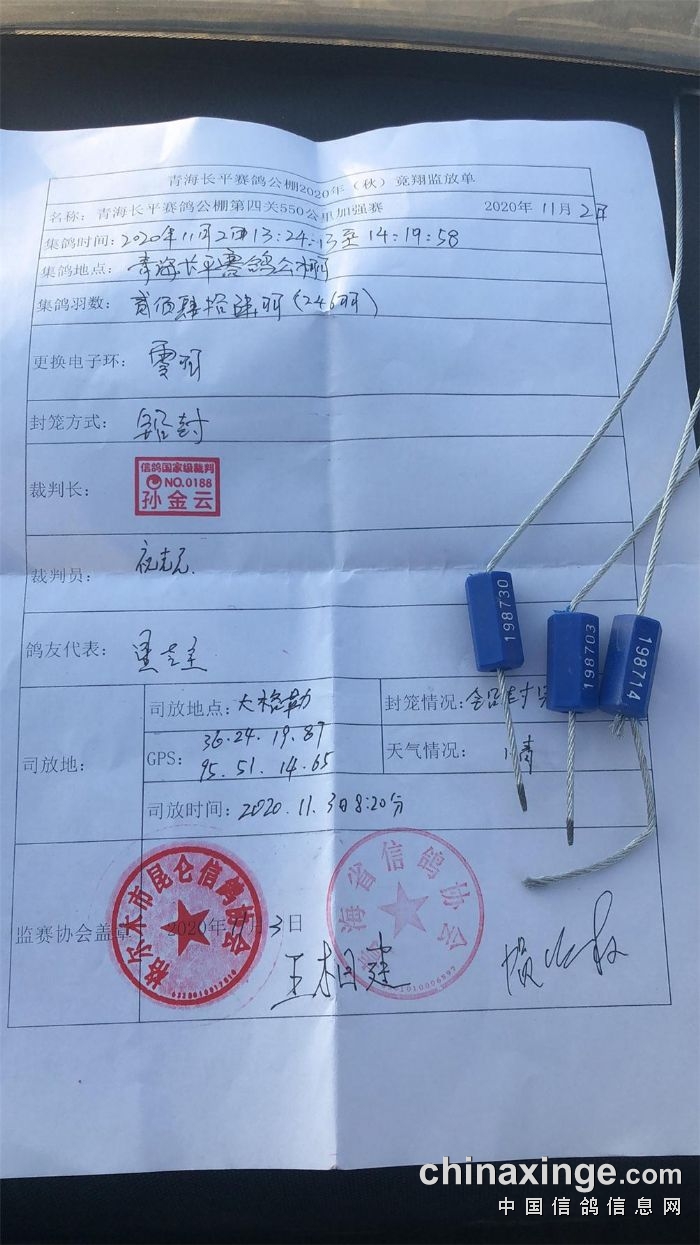 青海长平赛鸽公棚2020年（秋）竞翔监放单
名称：青海长平赛鸽公棚第四关550公里加强赛 2020年11月2日
集鸽时间：2020年11月2日13:24:13至14:19:58
集鸽地点：青海长平赛鸽公棚
集鸽羽数：贰佰肆拾陆羽（246羽）
更换电子环：零羽
封笼方式：铅封
裁判长：
信鸽国家级裁判
NO.0188
孙金云
裁判员：
鸽友代表：
司放地：
司放地点：大格勒
封笼情况：
GPS：36.24.19.87
95.51.14.65
天气情况：晴
司放时间：2020.11.3日8:20分
监赛协会盖章
2020年11月3日
格尔木市昆仑信鸽协会
海省信鸽协会
王相建
198730
198703
198714
chinaxinge.com
中国信鸽信息网